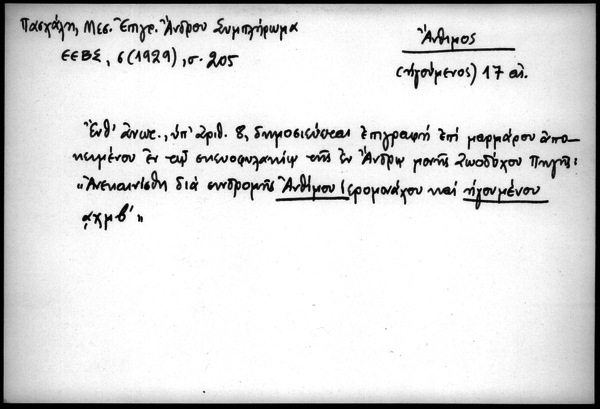 Πασχάλη, Μεσ. Ἐπιγρ. Ἄνδρου Συμπλήρωμα
ΕΕΒΣ, 6 (1929), σ. 205
Ἄνθιμος
(ἡγούμενος) 17 αἰ.
Ἔνθ' ἄνωτ., ὑπ' ἀριθ. 8, δημοσιεύεται ἐπιγραφή ἐπί μαρμάρου ἀπο-
κειμένου ἐν τῷ σκευοφυλακίῳ τῆς ἐν Ἄνδρῳ μονῆς Ζωοδόχου Πηγῆς:
"Ἀνεκαινίσθη διά συνδρομῆς Ἀνθίμου ἱερομονάχου καί ἡγουμένου
͵αχμβ'"